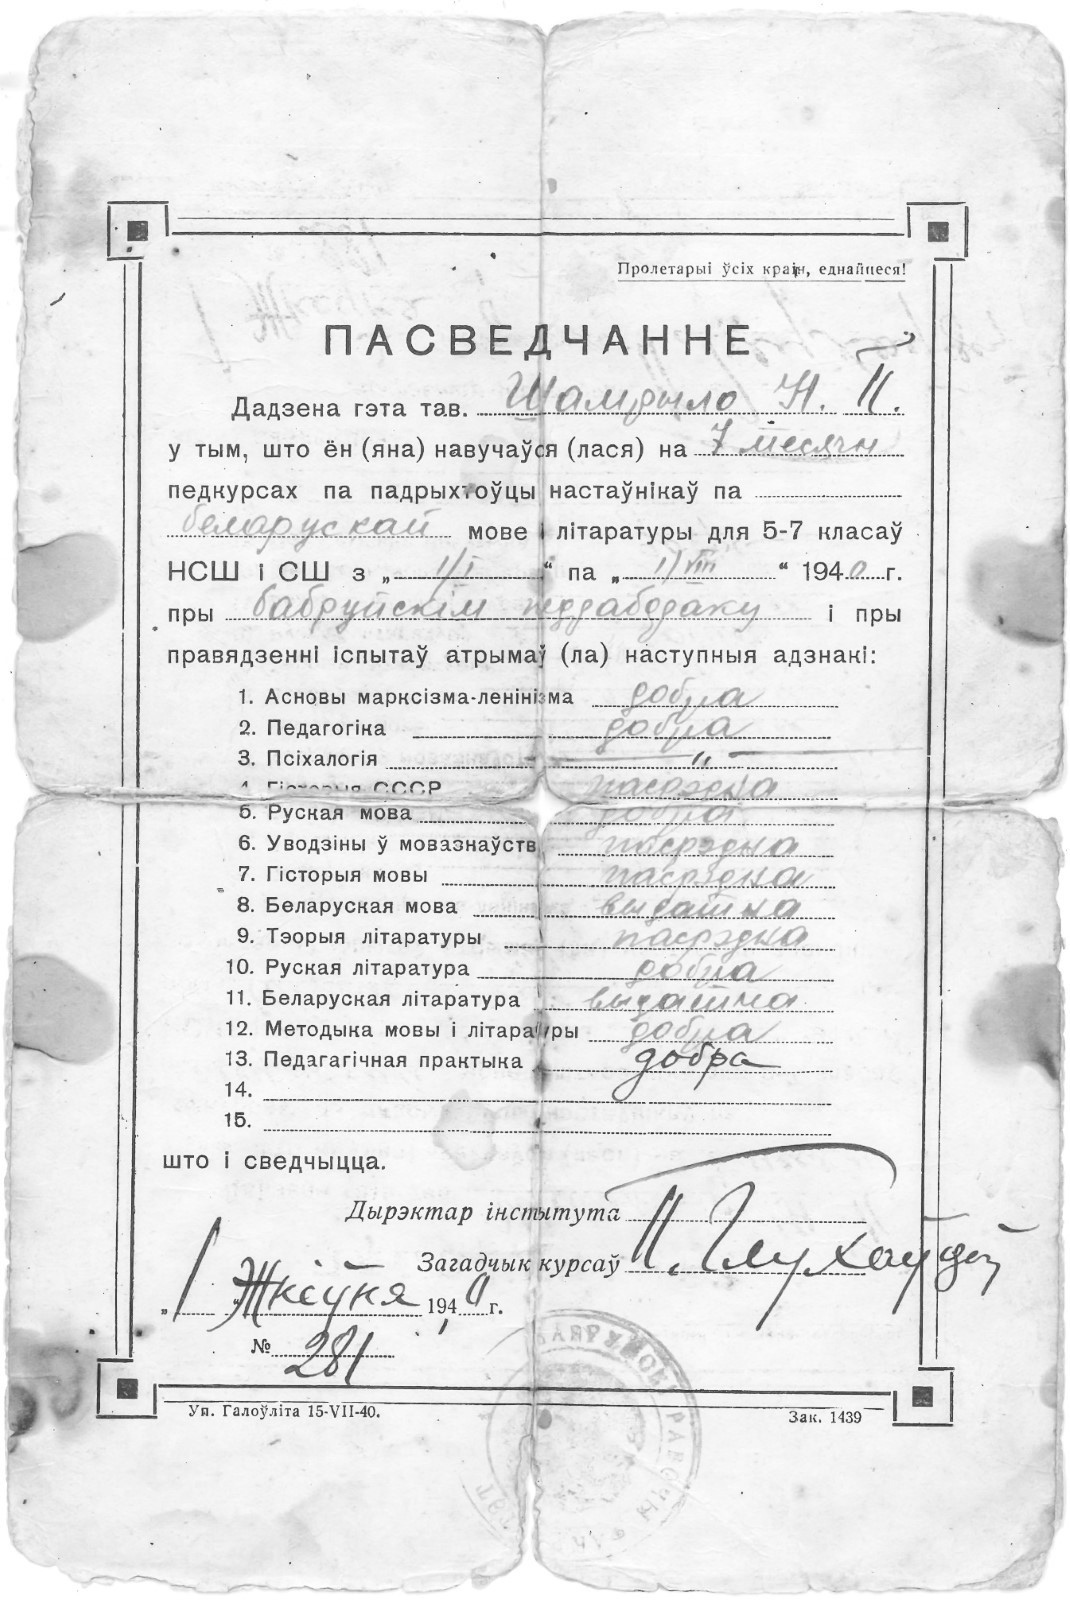 Пролетарыі ўсіх краін, еднайцеся!
ПАСВЕДЧАННЕ
Дадзена гэта тав. Шамрыло Н. П.
у тым, што ён (яна) навучаўся (лася) на 7 месячн
педкурсах па падрыхтоўцы настаўнікаў па
беларускай мове і літаратуры для 5-7 класаў
НСШ і СШ з „ 1/I “ па „ 1/VIII “ 1940 г.
пры бабруйскім педрабфаку і пры
правядзенні іспытаў атрымаў (ла) наступныя адзнакі:
1. Асновы марксізма-ленінізма добра
2. Педагогіка добра
3. Псіхалогія „
4. Гісторыя СССР пасрэдна
5. Руская мова добра
6. Уводзіны ў мовазнаўств пасрэдна
7. Гісторыя мовы пасрэдна
8. Беларуская мова выдатна
9. Тэорыя літаратуры пасрэдна
10. Руская літаратура добра
11. Беларуская літаратура выдатна
12. Методыка мовы і літаратуры добра
13. Педагагічная практыка добра
14.
15.
што і сведчыцца.
Дырэктар інстытута
Загадчык курсаў П.
„ 1 Жніўня 1940 г.
№ 281
Уп. Галоўліта 15-VII-40.
Зак. 1439